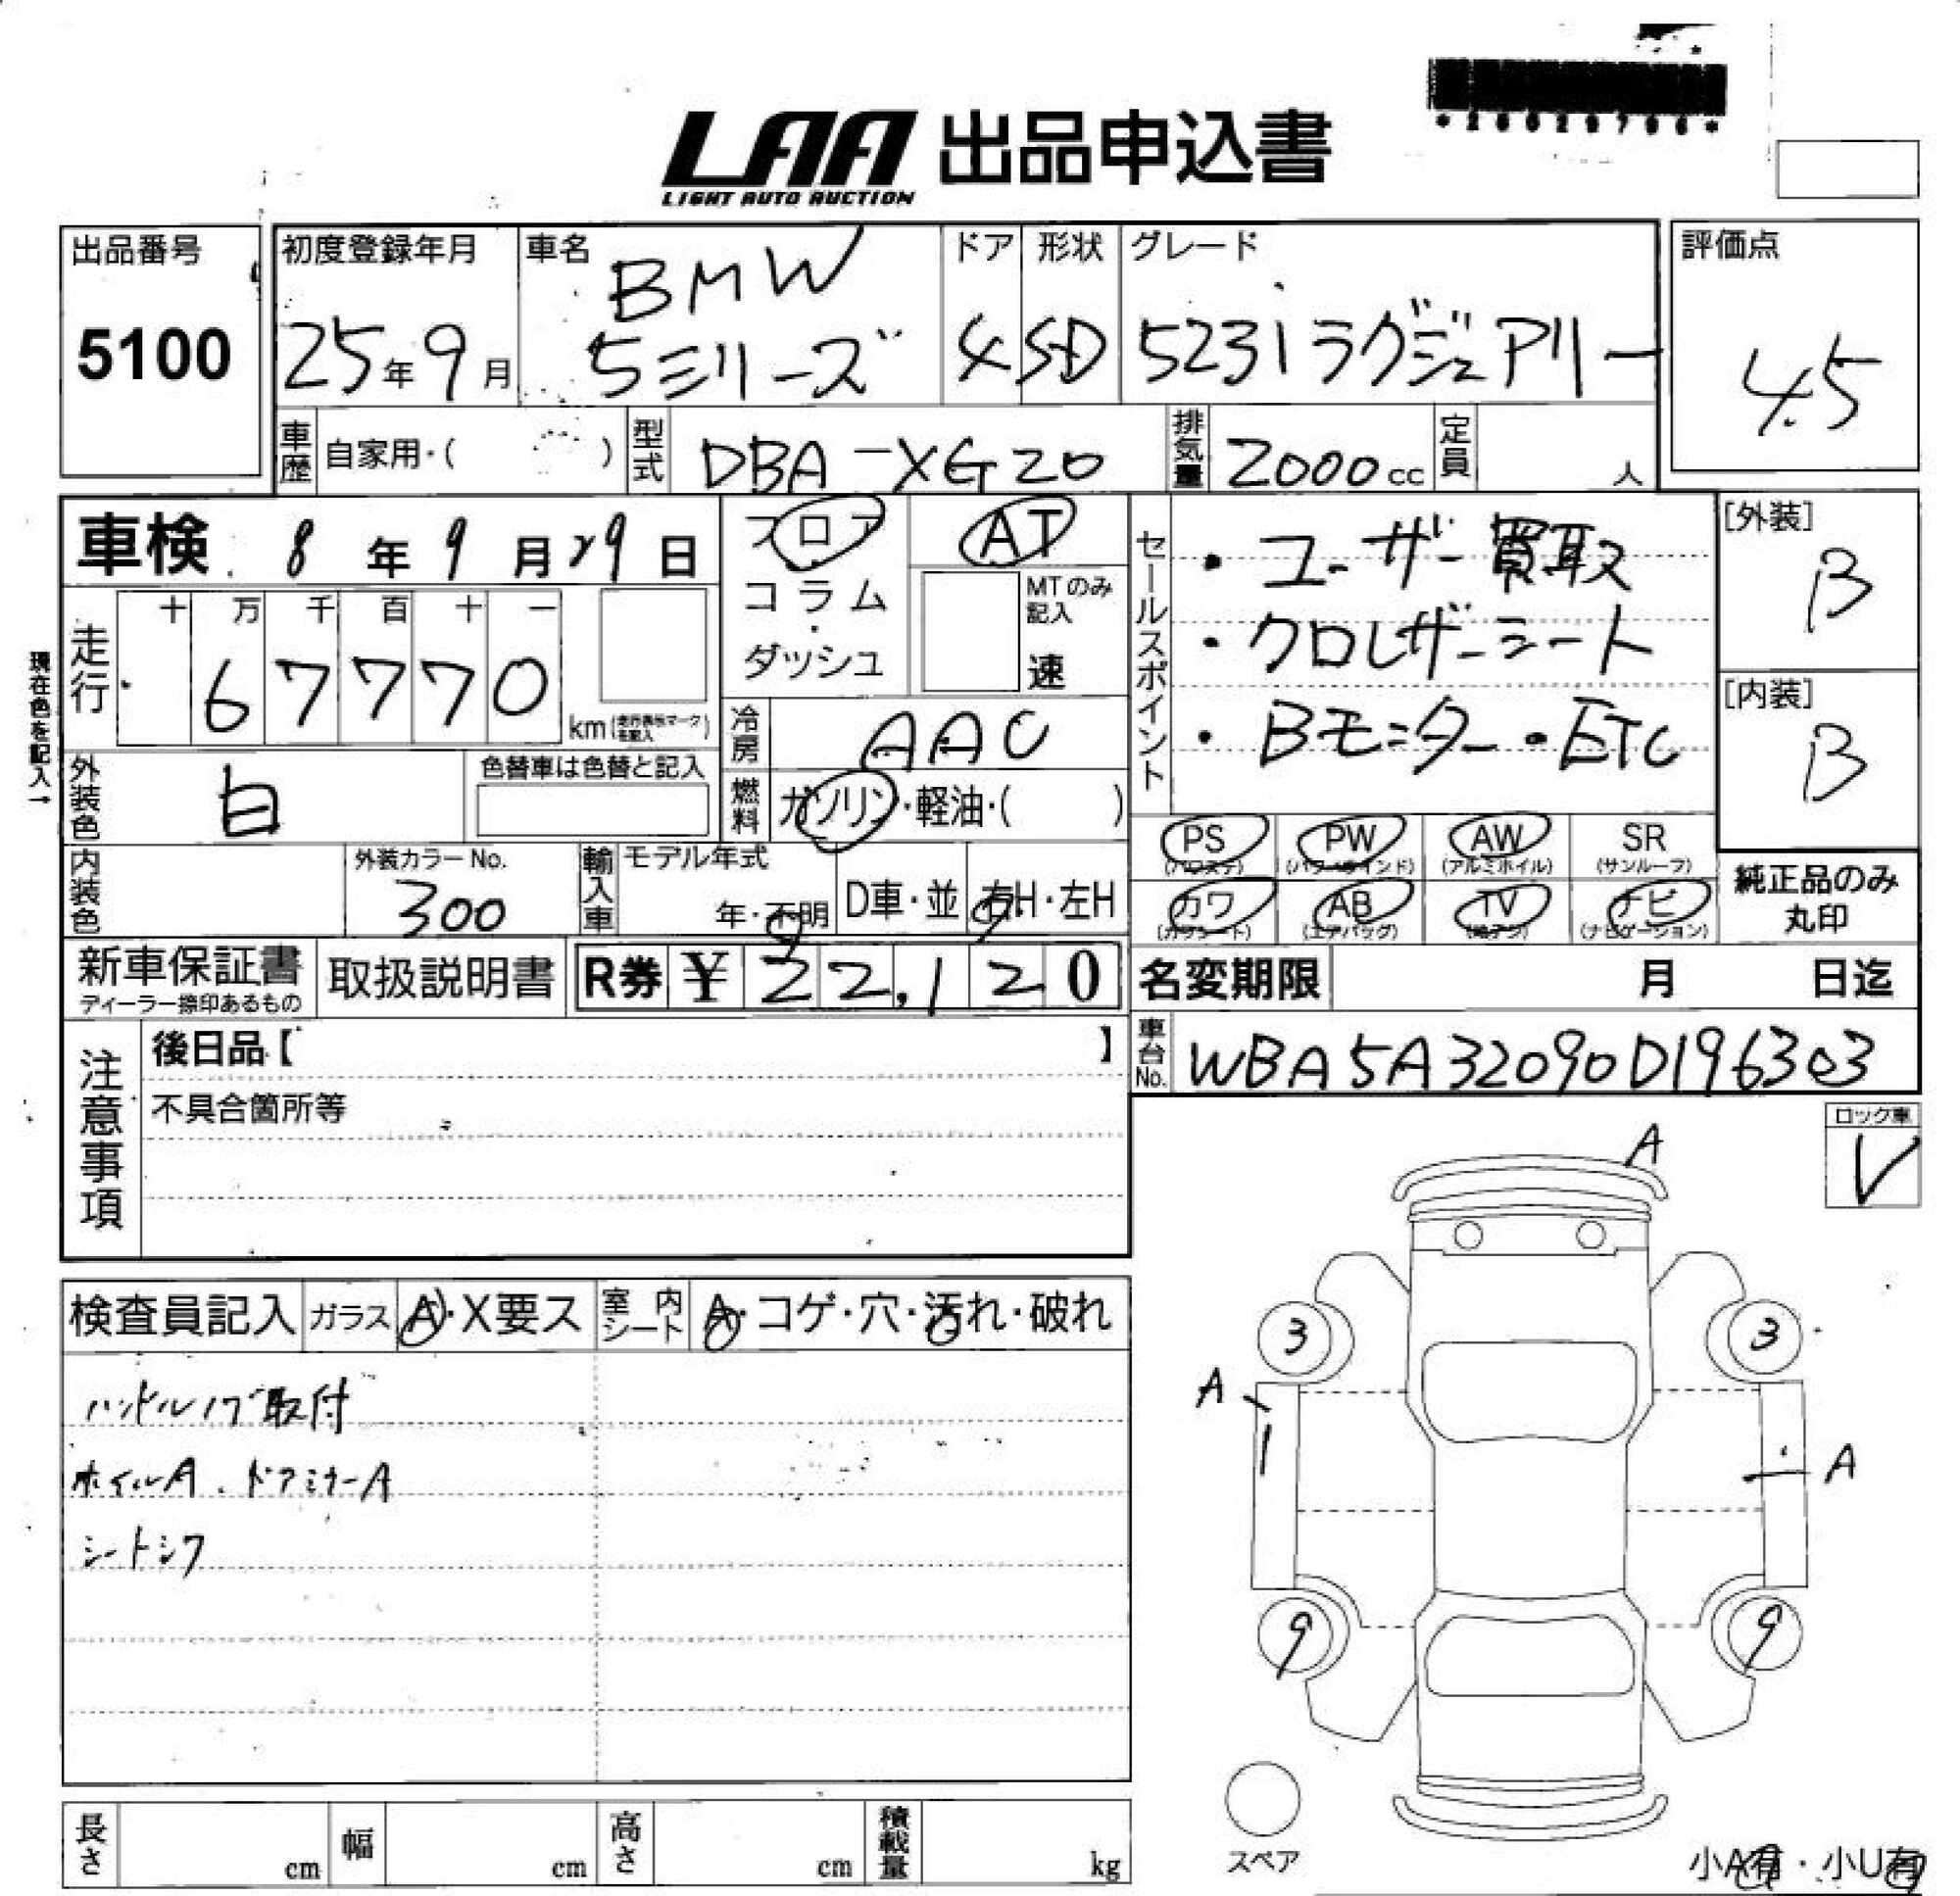 *26020706*
LAA 出品申込書
LIGHT AUTO AUCTION
出品番号
5100
初度登録年月
25年9月
車名
BMW
5シリーズ
ドア
4
形状
SD
グレード
523iラグジュアリー
評価点
4.5
車歴
自家用・( )
型式
DBA-XG20
排気量
2000cc
定員
人
車検 8年9月29日
フロア
コラム
・
ダッシュ
AT
MTのみ記入
速
セールスポイント
・ユーザー買取
・クロレザーシート
・Bモニター・ETC
[外装]
B
[内装]
B
現在色を記入→
走行
十 万 千 百 十 一
6 7 7 7 0
km(走行表示マークを記入)
冷房
AAC
燃料
ガソリン・軽油・( )
外装色
白
色替車は色替と記入
内装色
外装カラーNo.
300
輸入車
モデル年式
年・不明
D車・並
右H・左H
PS
(パワステ)
PW
(パワーウインド)
AW
(アルミホイル)
SR
(サンルーフ)
カワ
(カワシート)
AB
(エアバッグ)
TV
(地デジ)
ナビ
(ナビゲーション)
純正品のみ
丸印
新車保証書
ディーラー捺印あるもの
取扱説明書
R券 ¥ 22,120
名変期限 月 日迄
車台No.
WBA5A32090D196303
注意事項
後日品【 】
不具合箇所等
ロック車
V
検査員記入
ガラス
A・X要ス
室内シート
A・コゲ・穴・汚れ・破れ
ハンドルノブ取付
ホイルA、ドアミラーA
シートシワ
A
3
3
A
A
9
9
スペア
小A有・小U有
長さ cm
幅 cm
高さ cm
積載量 kg